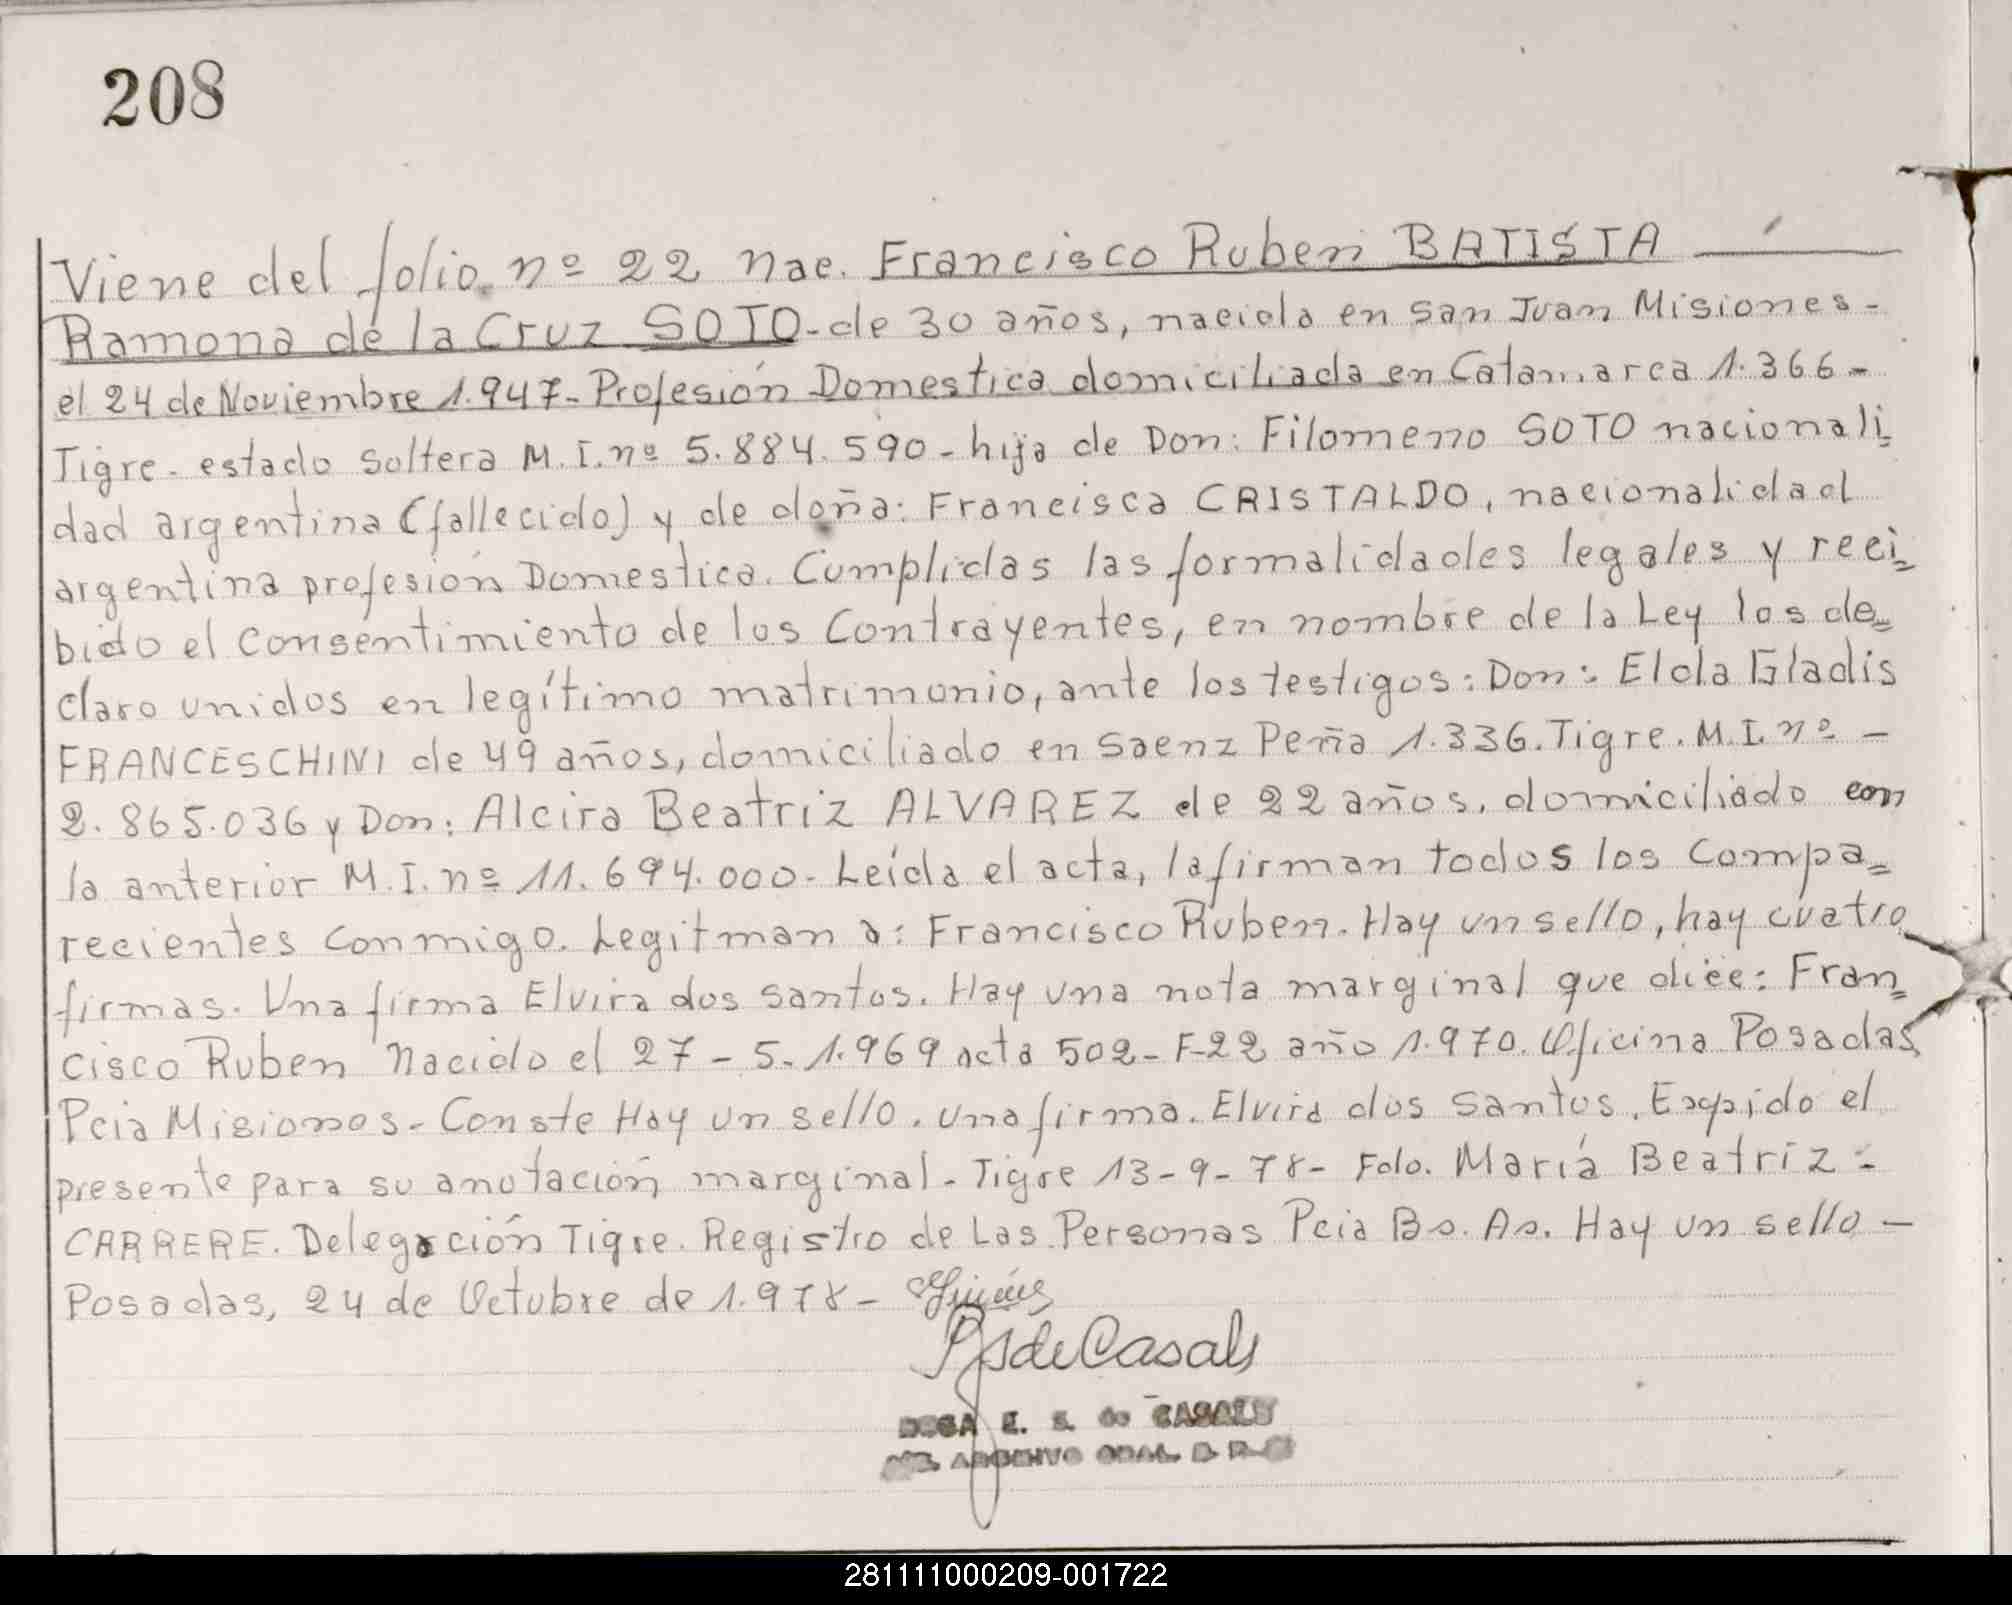 208
Viene del folio nº 22 nac. Francisco Ruben BATISTA
Ramona de la Cruz SOTO-de 30 años, nacida en San Juan Misiones-
el 24 de Noviembre 1.947-Profesión Domestica domiciliada en Catamarca 1.366-
Tigre-estado Soltera M.I.nº 5.884.590-hija de Don: Filomeno SOTO nacionali=
dad argentina (fallecido) y de doña: Francisca CRISTALDO, nacionalidad
argentina profesión Domestica. Cumplidas las formalidades legales y reci=
bido el Consentimiento de los Contrayentes, en nombre de la Ley los de=
claro unidos en legítimo matrimonio, ante los testigos: Don: Elda Gladis
FRANCESCHINI de 49 años, domiciliado en Saenz Peña 1.336.Tigre.M.I.nº -
2.865.036 y Don: Alcira Beatriz ALVAREZ de 22 años, domiciliado con
la anterior M.I.nº 11.694.000-Leída el acta, la firman todos los Compa=
recientes Conmigo. Legitman a: Francisco Ruben. Hay un sello, hay cuatro
firmas. Una firma Elvira dos Santos. Hay una nota marginal que dice: Fran=
cisco Ruben Nacido el 27-5-1.969 acta 502-F-22 año 1.970. Oficina Posadas
Pcia Misiones-Conste Hay un sello. una firma. Elvira dos Santos. Expido el
presente para su anotación marginal-Tigre 13-9-78- Fdo. María Beatriz-
CARRERE. Delegación Tigre. Registro de Las Personas Pcia Bs. As. Hay un sello-
Posadas, 24 de Octubre de 1.978-
de Casals
E. S. de CASALS
ARCHIVO GRAL
281111000209-001722